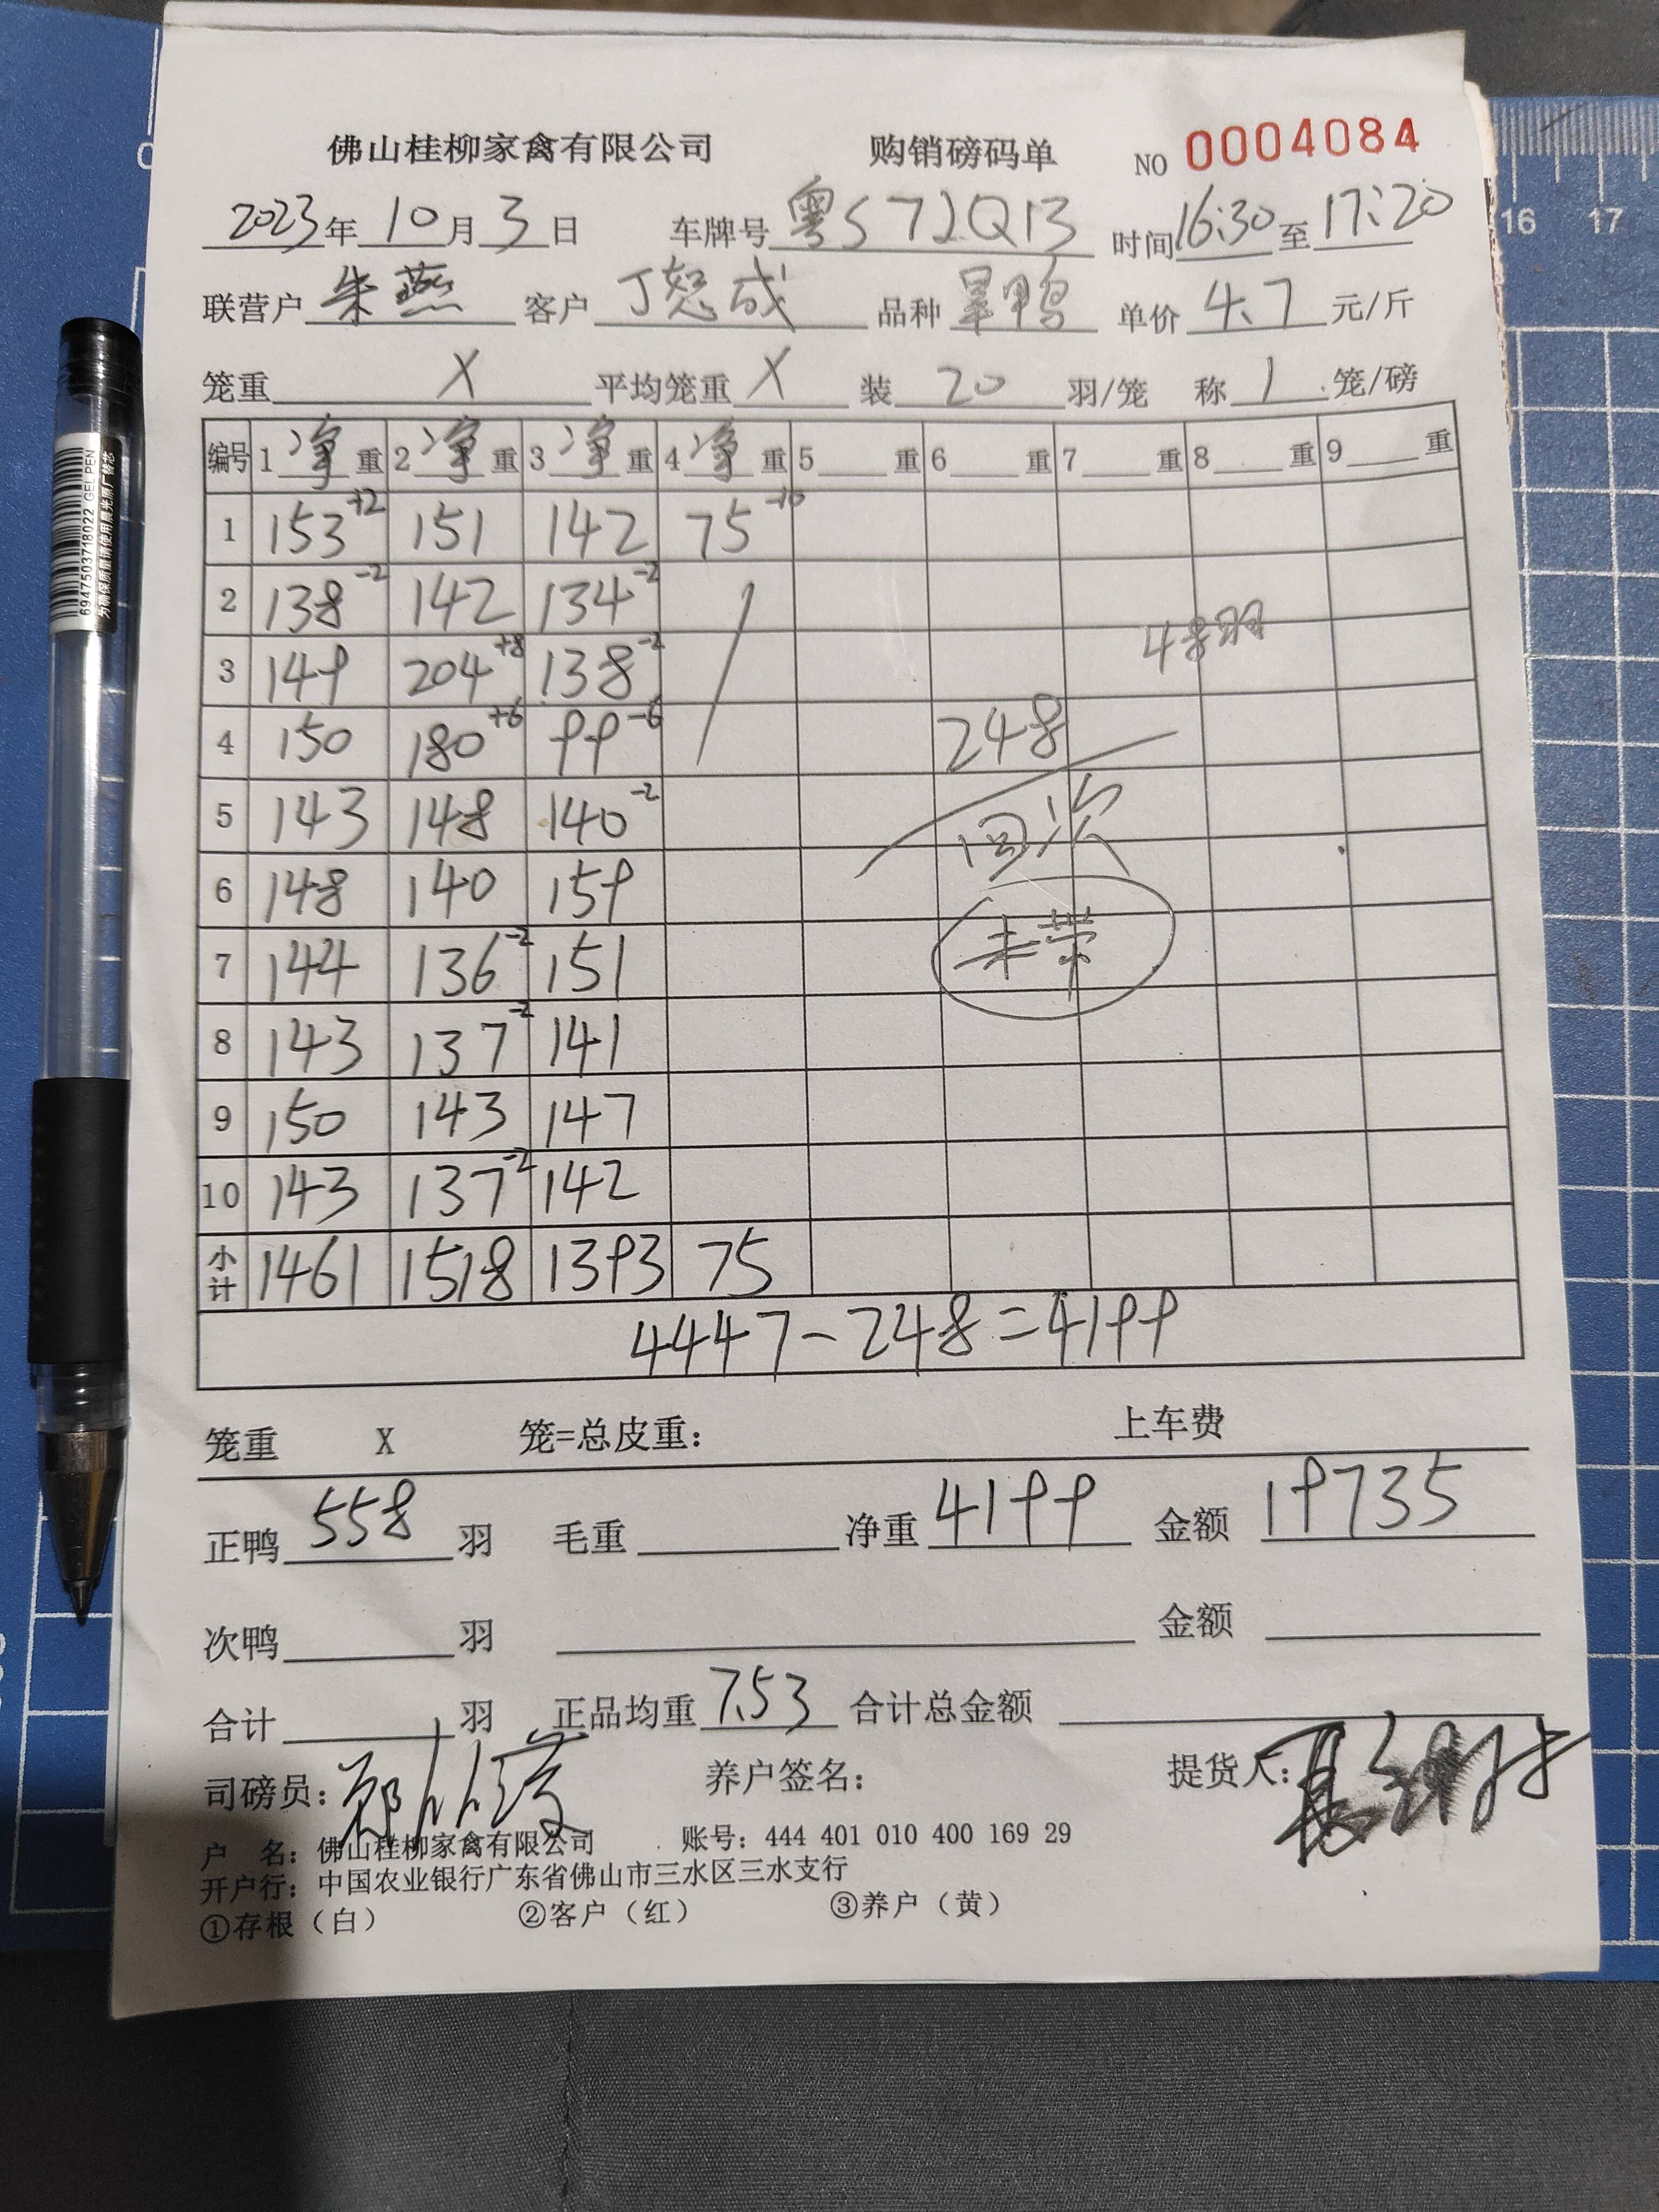 佛山桂柳家禽有限公司 购销磅码单 NO 0004084
2023年10月3日 车牌号粤S72Q13 时间16:30至17:20
联营户朱燕 客户丁恕成 品种旱鸭 单价4.7元/斤
笼重X 平均笼重X 装20羽/笼 称1笼/磅
编号 1净重 2净重 3净重 4净重 5重 6重 7重 8重 9重
1 153+2 151 142 75-10
2 138-2 142 134-2
48羽
3 149 204+8 138-2
4 150 180+6 99-6 248
5 143 148 140-2 回次
6 148 140 159
7 144 136-2 151 未带
8 143 137-2 141
9 150 143 147
10 143 137-2 142
小计 1461 1518 1393 75
4447-248=4199
笼重 X 笼=总皮重: 上车费
正鸭558羽 毛重 净重4199 金额19735
次鸭 羽 金额
合计 羽 正品均重7.53 合计总金额
司磅员: 养户签名: 提货人:
户 名: 佛山桂柳家禽有限公司 账号: 444 401 010 400 169 29
开户行: 中国农业银行广东省佛山市三水区三水支行
①存根（白） ②客户（红） ③养户（黄）
6947503718022 GEL PEN
为确保质量请使用晨光原厂替芯
16 17